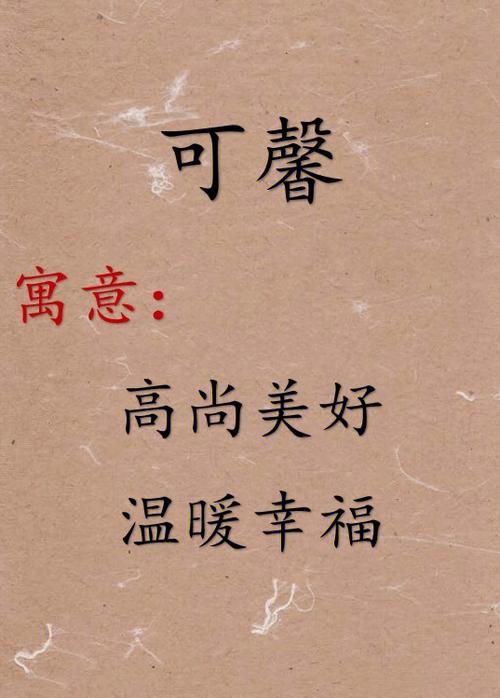 可馨
寓意：
高尚美好
温暖幸福